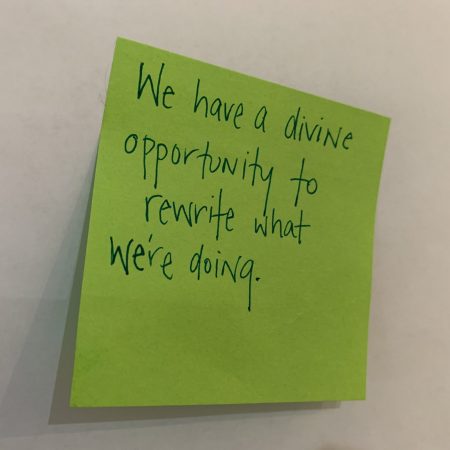 We have a divine
opportunity to
rewrite what
We're doing.